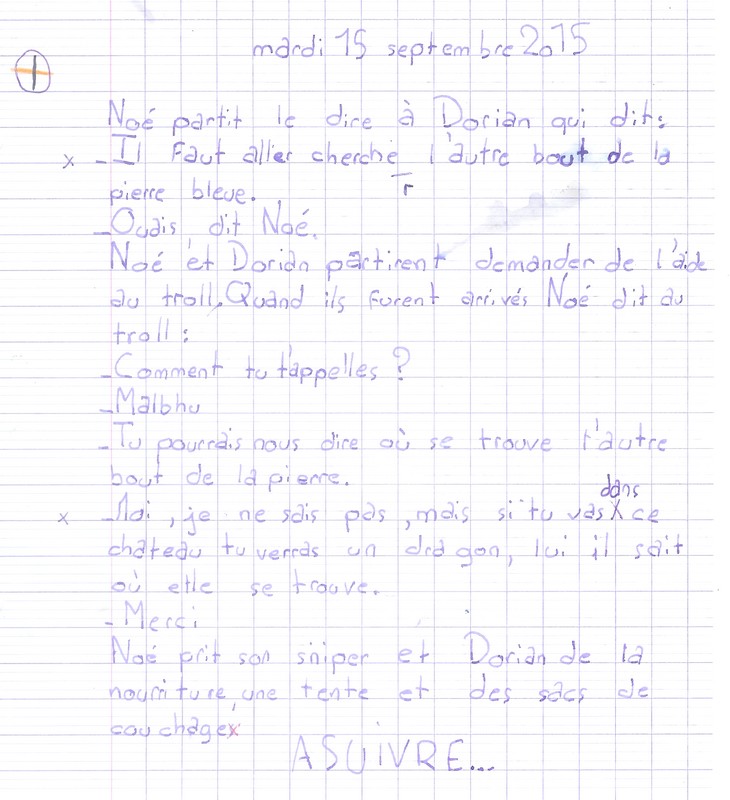 mardi 15 septembre 2015
Noé partit le dire à Dorian qui dit:
x -Il Faut aller cherche l'autre bout de la
r
pierre bleue.
-Ouais dit Noé.
Noé et Dorian partirent demander de l'aide
au troll. Quand ils furent arrivés Noé dit au
troll:
-Comment tu t'appelles ?
-Malbhu
-Tu pourrais nous dire où se trouve l'autre
bout de la pierre.
dans
x -Moi, je ne sais pas, mais si tu vas X ce
chateau tu verras un dragon, lui il sait
où elle se trouve.
-Merci
Noé prit son sniper et Dorian de la
nourriture, une tente et des sacs de
couchages
A SUIVRE...